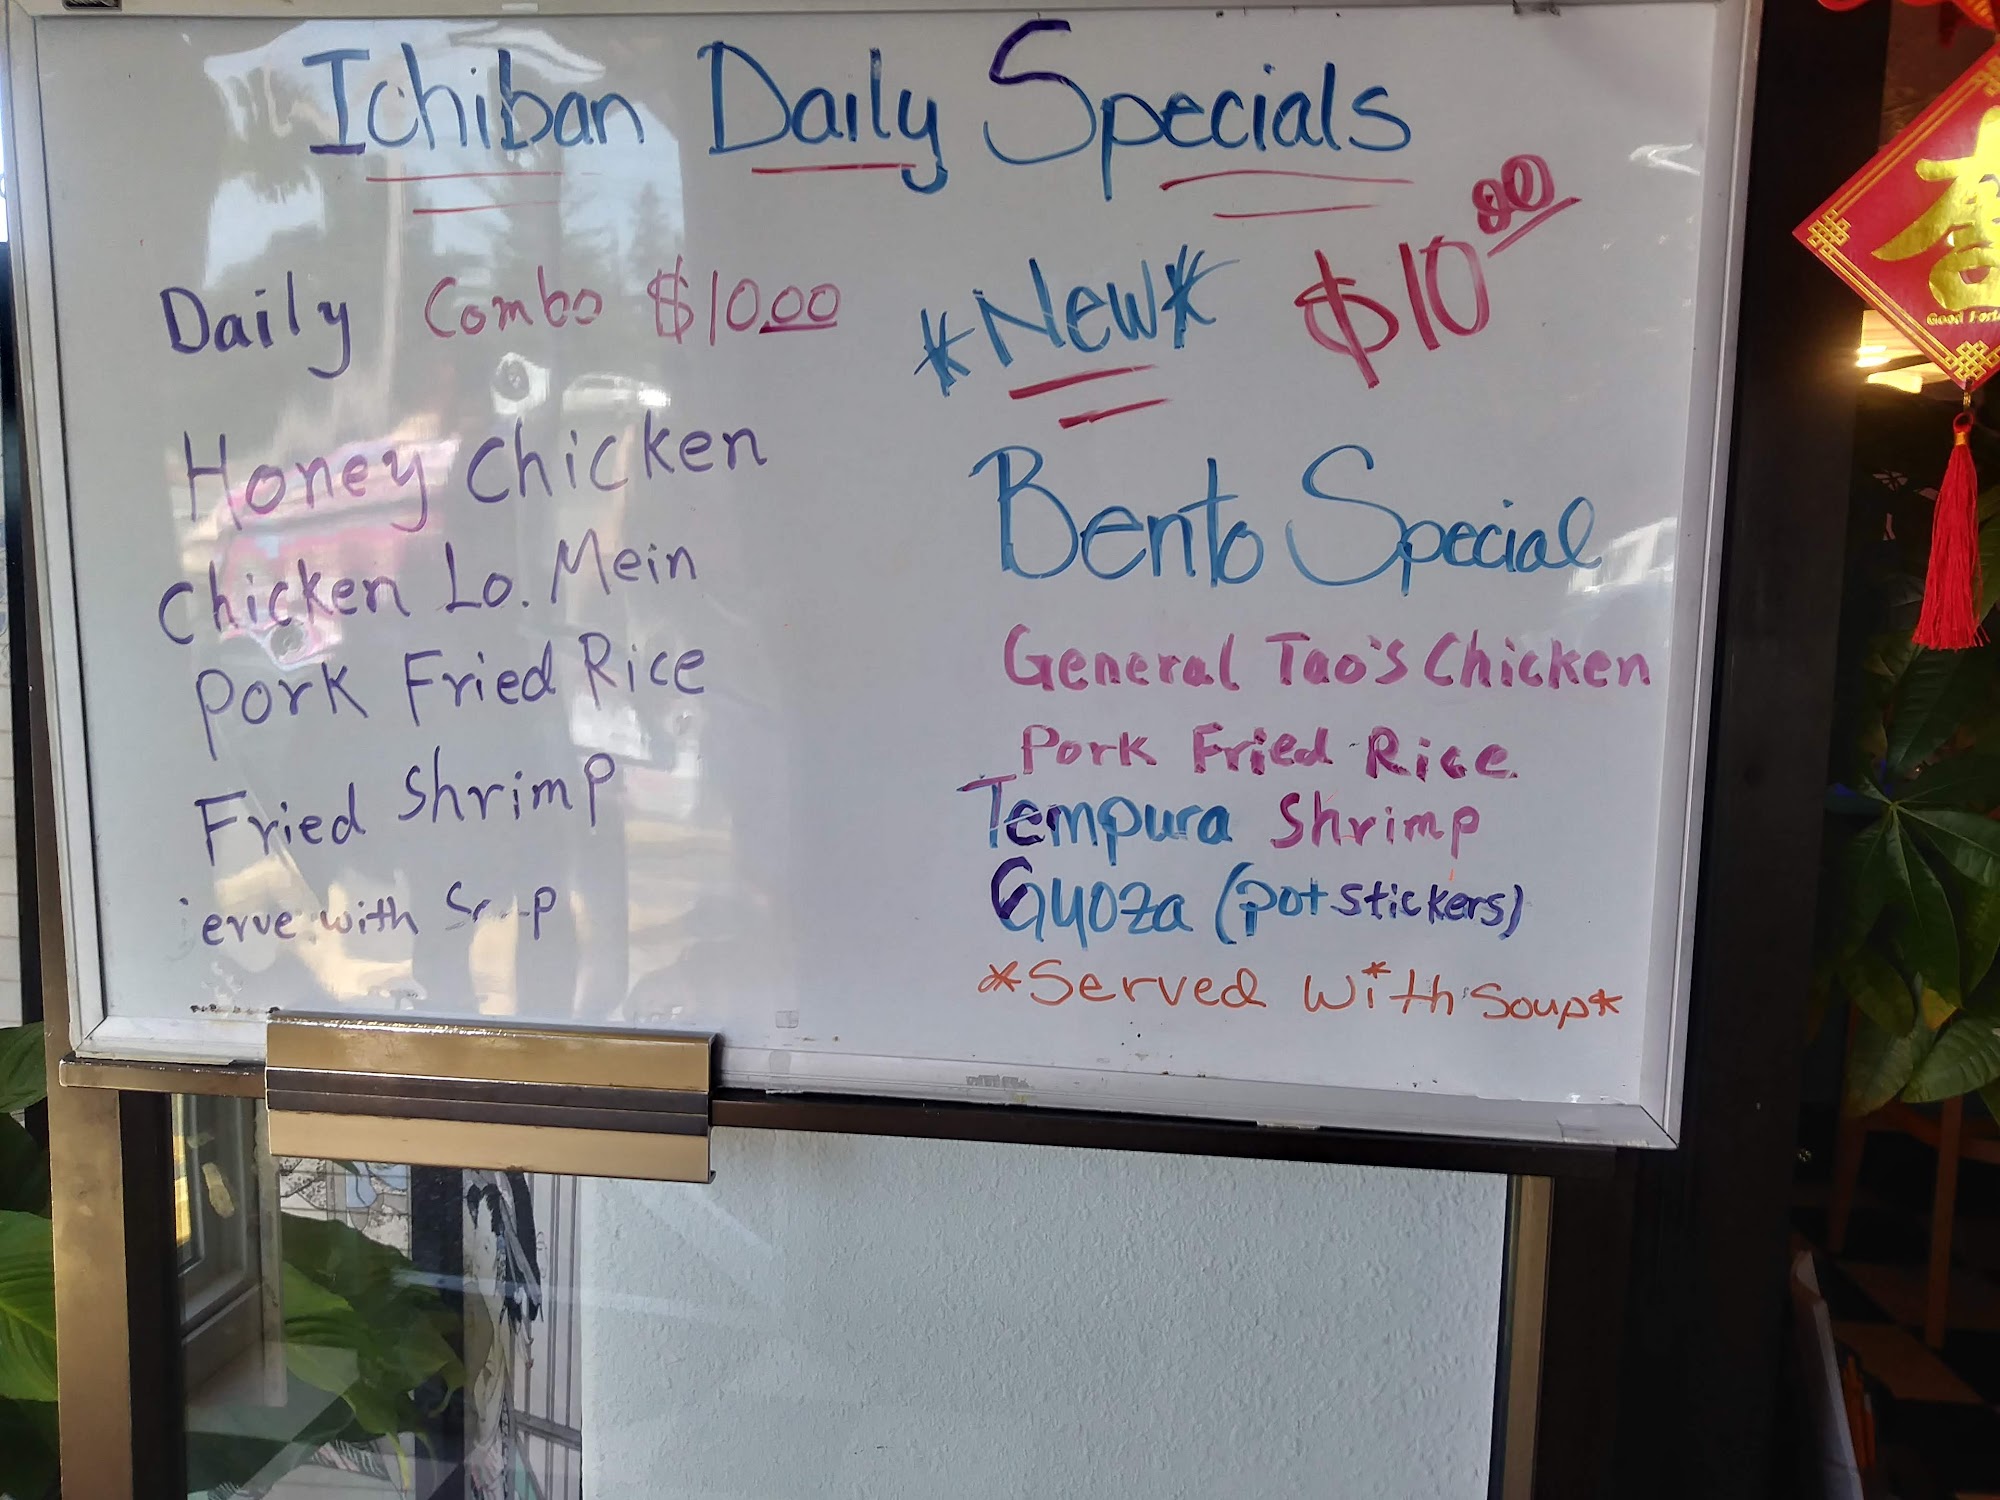 Ichiban Daily Specials
Daily Combo $10.00
Honey Chicken
Chicken Lo. Mein
Pork Fried Rice
Fried Shrimp
erve with
*New* $10.00
Bento Special
General Tao's Chicken
Pork Fried Rice
Tempura Shrimp
Gyoza (potstickers)
*Served with soup*
Good